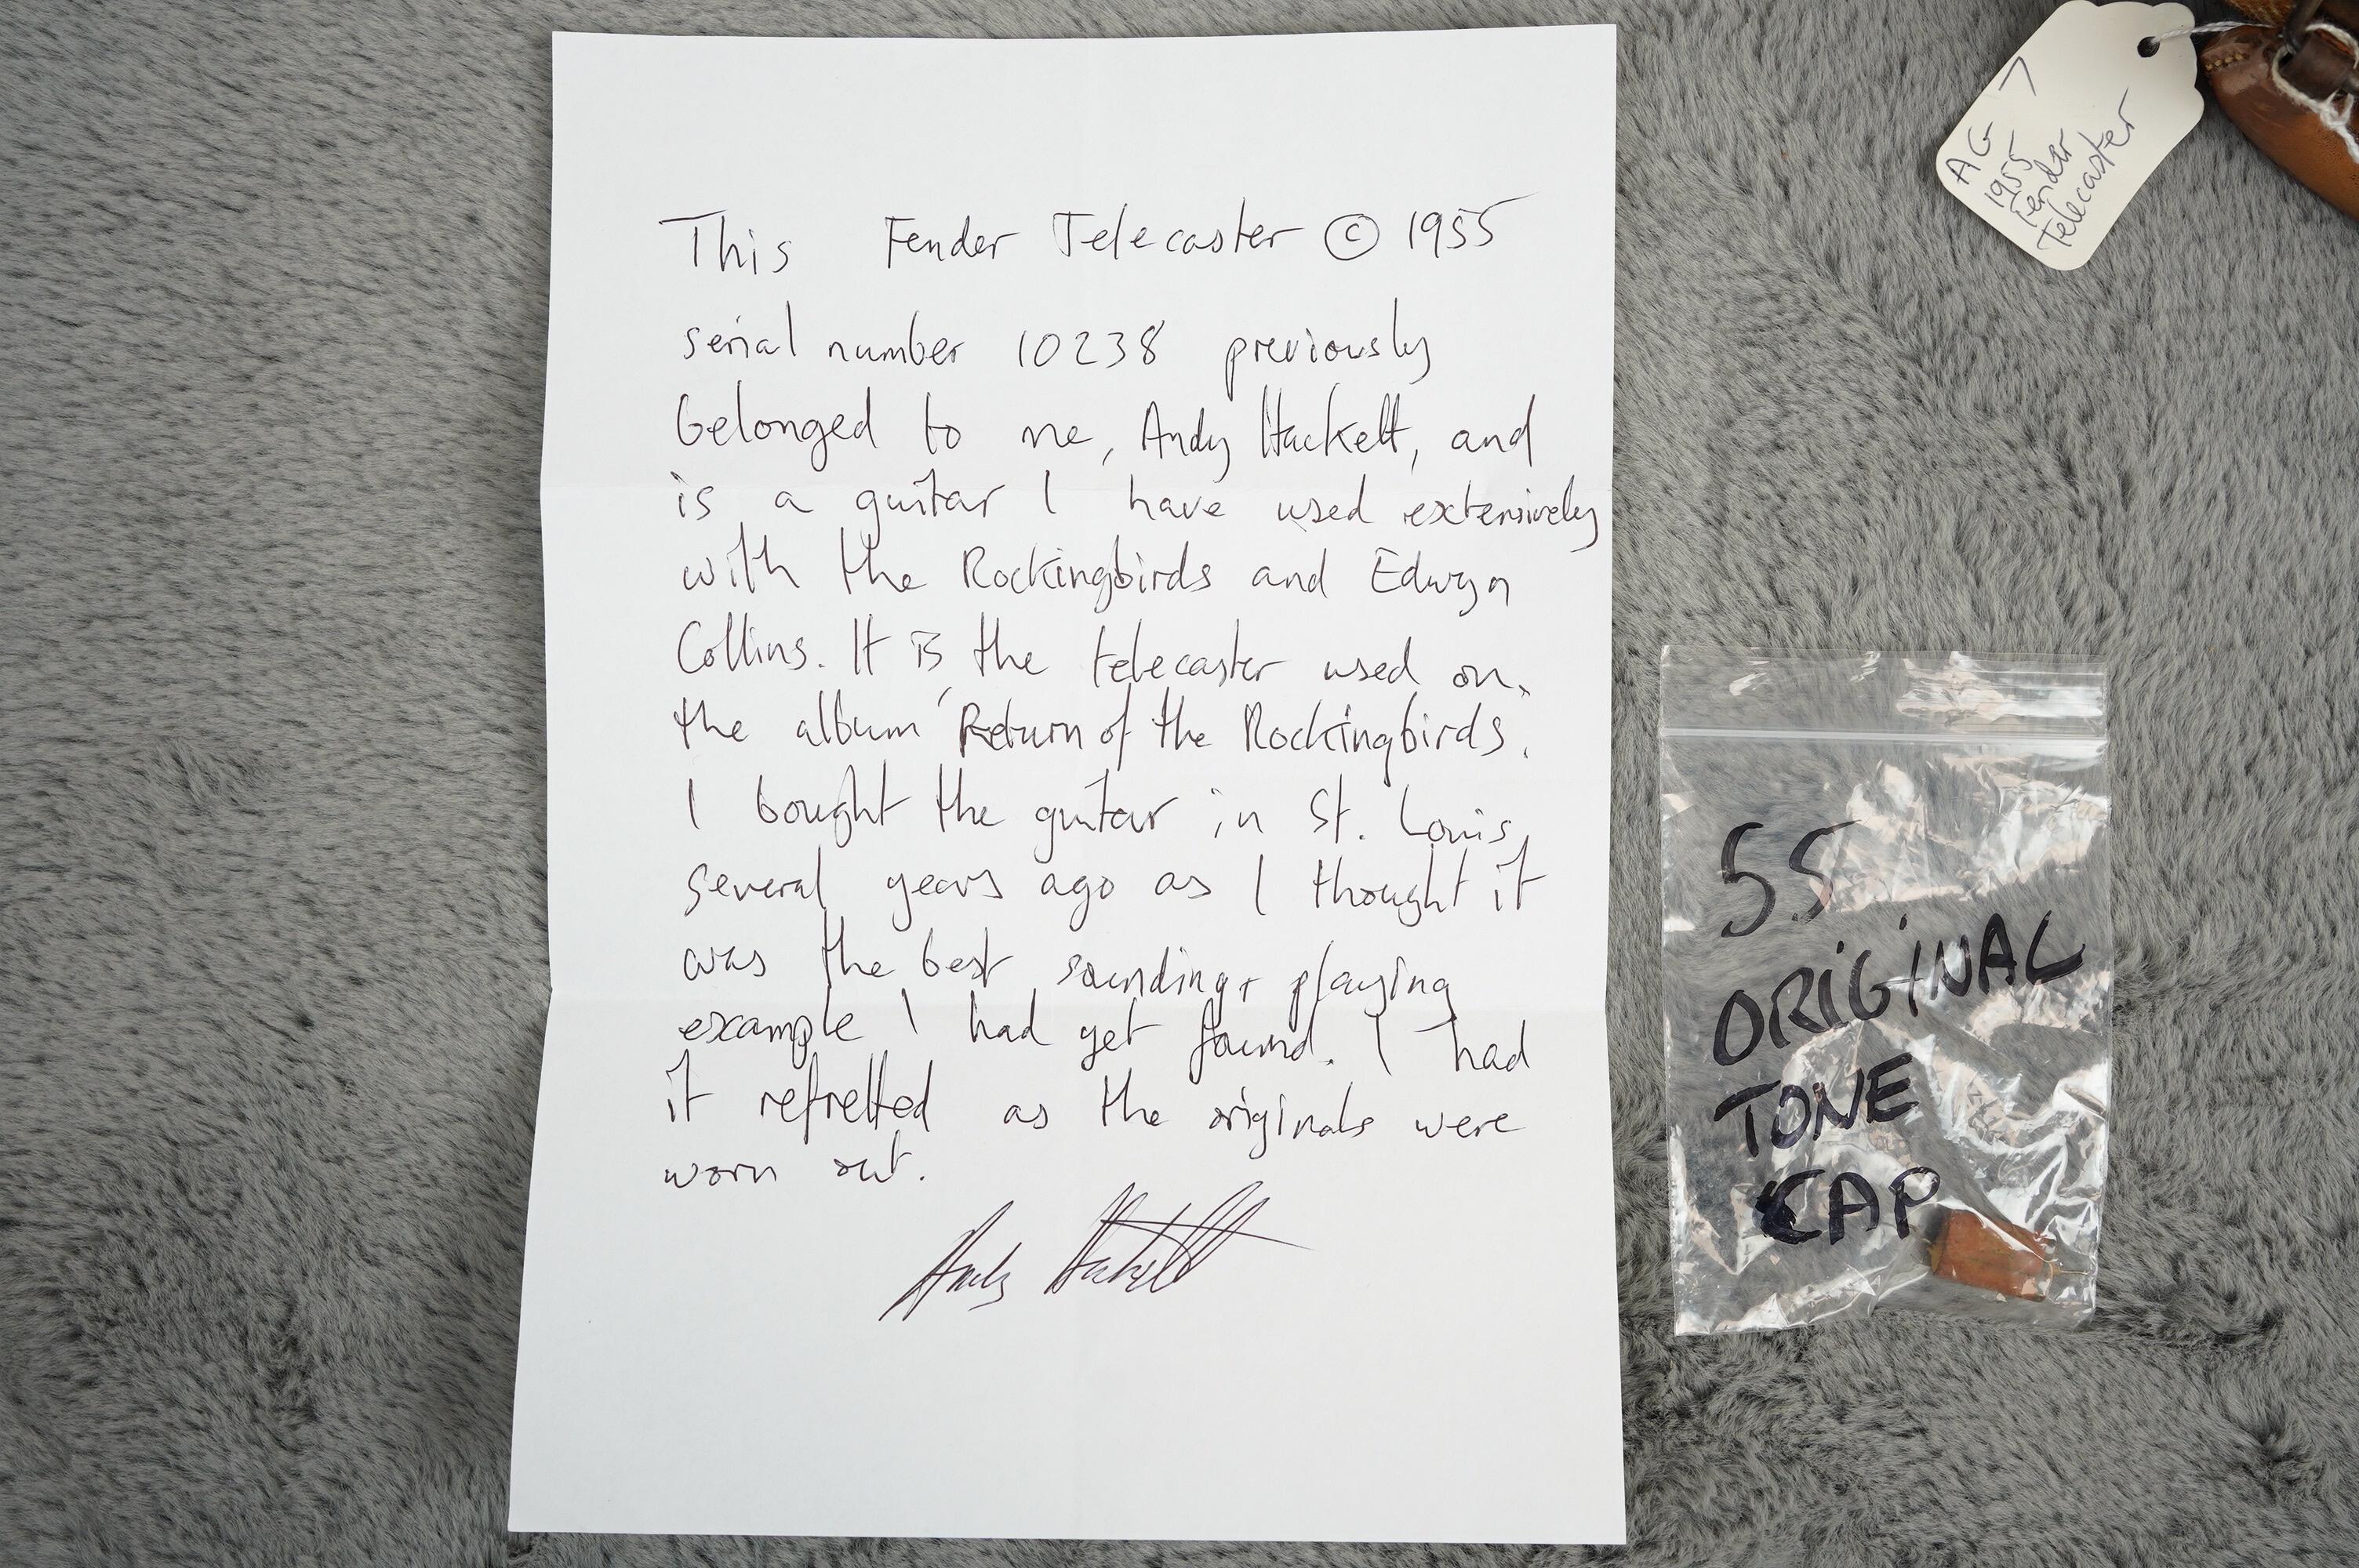 This Fender Telecaster © 1955
serial number 10238 previously
belonged to me, Andy Hackett, and
is a guitar I have used extensively
with the Rockingbirds and Edwyn
Collins. It is the telecaster used on
the album 'Return of the Rockingbirds'.
I bought the guitar in St. Louis,
several years ago as I thought it
was the best sounding + playing
example I had yet found. I had
it refretted as the originals were
worn out.
Andy Hackett
AG 7
1955
Fender
Telecaster
55
ORIGINAL
TONE
CAP